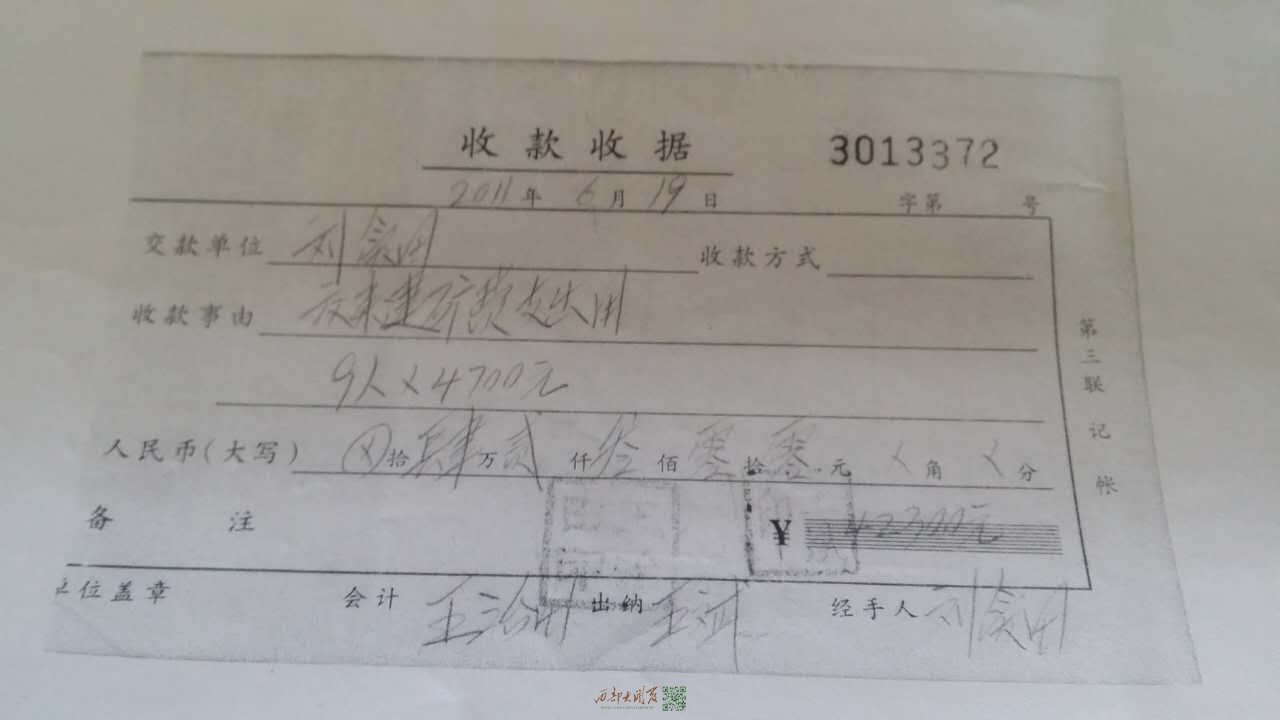 收款收据 3013372
2011年 6月 19日 字第 号
交款单位 刘 收款方式
收款事由 建矿费支出用
9人×4700元
人民币(大写) 拾 肆 万 贰 仟 叁 佰 零 拾 零 元 × 角 × 分
备 注 ¥ 42300元
位盖章 会计 王治 出纳 王 经手人 刘
第三联 记帐
西部大开发